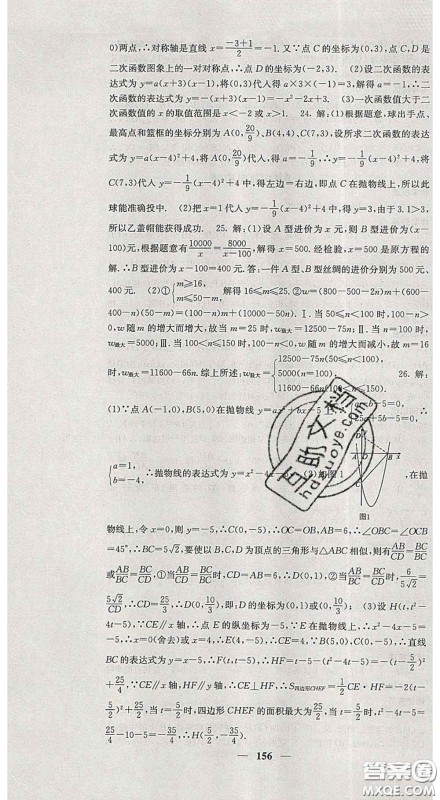 0)两点,∴对称轴是直线x=(-3+1)/2=-1.又∵点C的坐标为(0,3),点C,D是
二次函数图象上的一对对称点,∴点D的坐标为(-2,3). (2)设二次函数的表
达式为y=a(x+3)(x-1),将(0,3)代入得a×3×(-1)=3,解得a=-1,∴二
次函数的表达式为y=-x²-2x+3. (3)一次函数值大于二
次函数值的x的取值范围是x<-2或x>1. 24.解:(1)根据题意,球出手点、
最高点和篮框的坐标分别为A(0,20/9),B(4,4),C(7,3),设所求二次函数的表
达式为y=a(x-4)²+4,将A(0,20/9)代入,得a=-1/9,∴y=-1/9(x-4)²+4,将
C(7,3)代入y=-1/9(x-4)²+4中,得左边=右边,即点C在抛物线上,所以此
球能准确投中. (2)把x=1代入y=-1/9(x-4)²+4得,y=3,由于3.1>3,
所以乙盖帽能获得成功. 25.解:(1)设A型进价为x元,则B型进价为(x-
100)元,根据题意有10000/x=8000/(x-100),解得x=500.经检验,x=500是原方程的
解.∴B型进价为x-100=400元.答:一件A型、B型丝绸的进价分别为500元、
400元. (2)①{m≥16, m≤50-m, 解得16≤m≤25.②w=(800-500-2n)m+(600-
400-n)(50-m)=(300-2n)m+(200-n)(50-m)=(100-n)m+(10000-50n).Ⅰ.当50≤n<100
时,w随m的增大而增大,故当m=25时,w最大=12500-75n;Ⅱ.当n=100时,
w最大=5000;Ⅲ.当100<n≤150时,w随m的增大而减小,故当m=16
时,w最大=11600-66n.综上所述:w最大={12500-75n(50≤n<100), 5000(n=100), 11600-66n(100<n≤150). 26.解:
(1)∵点A(-1,0),B(5,0)在抛物线y=ax²+bx-5上,
{a=1, b=-4, ∴抛物线的表达式为y=x²-4x-5. (2)如图1 ,在抛
图1
物线上,令x=0,则y=-5,∴C(0,-5),∴OC=OB,∴∠OBC=∠OCB
=45°,∴BC=5√2,要使以B,C,D为顶点的三角形与△ABC相似,则有AB/BC=CD/BC
或AB/BC=BC/CD,①当AB/BC=CD/BC时,CD=AB=6,∴D(0,1),②当AB/BC=BC/CD时,6/(5√2)=
5√2/CD,∴CD=25/3,∴D(0,10/3),即:D的坐标为(0,1)或(0,10/3); (3)设H(t,t²
-4t-5),∵CE∥x轴,∴点E的纵坐标为-5,∵E在抛物线上,∴x²-4x-5
=-5,∴x=0(舍去)或x=4,∴E(4,-5),∴CE=4,∵B(5,0),C(0,-5),∴直线
BC的表达式为y=x-5,∴F(t,t-5),∴HF=t-5-(t²-4t-5)=-(t-5/2)²
+25/4,∵CE∥x轴,HF∥y轴,∴CE⊥HF,∴S四边形CHEF=1/2CE·HF=-2(t-
5/2)²+25/2,当t=5/2时,四边形CHEF的面积最大为25/2.当t=5/2时,t²-4t-5=
25/4-10-5=-35/4,∴H(5/2,-35/4).
156
互助文档
hdzuoye.com
答案圈
MXQE.COM